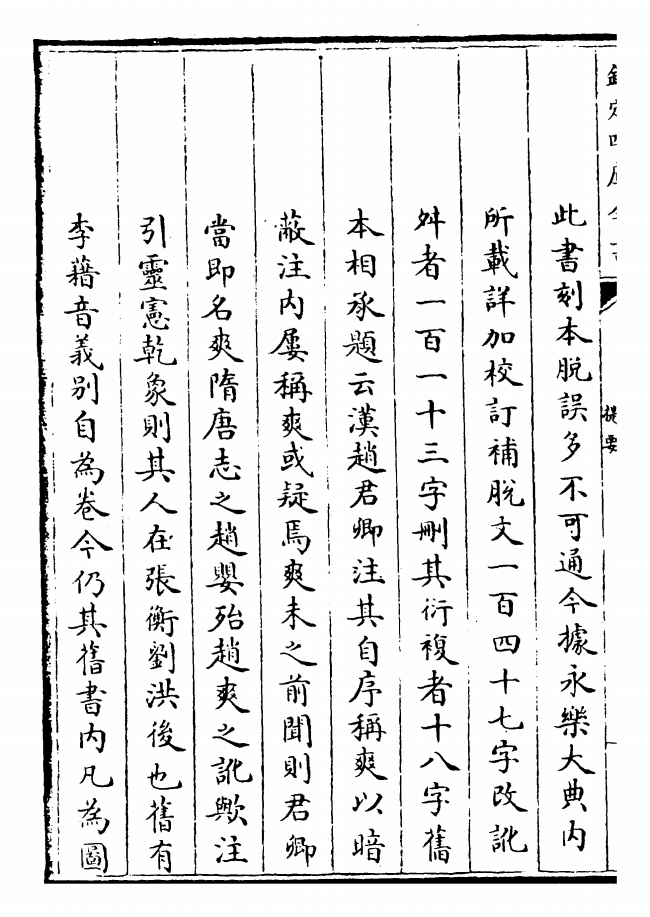 欽定四庫全書
提要
此書刻本脫誤多不可通今據永樂大典内
所載詳加校訂補脫文一百四十七字改訛
舛者一百一十三字刪其衍複者十八字舊
本相承題云漢趙君卿注其自序稱爽以暗
蔽注内屢稱爽或疑焉爽未之前聞則君卿
當即名爽隋唐志之趙嬰殆趙爽之訛歟注
引靈憲乾象則其人在張衡劉洪後也舊有
李藉音義别自為卷今仍其舊書内凡為圖